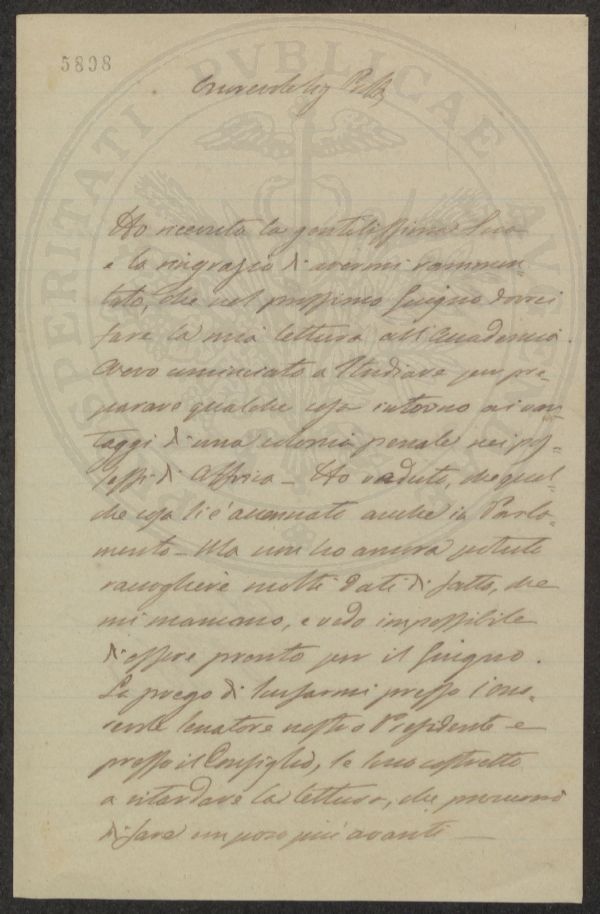 5898
PVBLICAE
PROSPERITATI
AVGENDAE
Ho ricevuta la gentilissima Sua
e la ringrazio di avermi rammen-
tato, che nel prossimo Giugno dovrei
fare la mia lettura all'Accademia.
Avevo cominciato a studiare per pre-
parare qualche cosa intorno ai van-
taggi di una colonia penale nei pos-
sessi di Affrica - Ho veduto, che qual-
che cosa si è accennato anche in Parla-
mento - Ma non ho ancora potuto
raccogliere molti dati di fatto, che
mi mancano, e vedo impossibile
d'essere pronto per il Giugno.
La prego di scusarmi presso l'ono-
revole Senatore nostro Presidente e
presso il Consiglio, se sono costretto
a ritardare la lettura, che procurerò
di fare un poco più avanti -